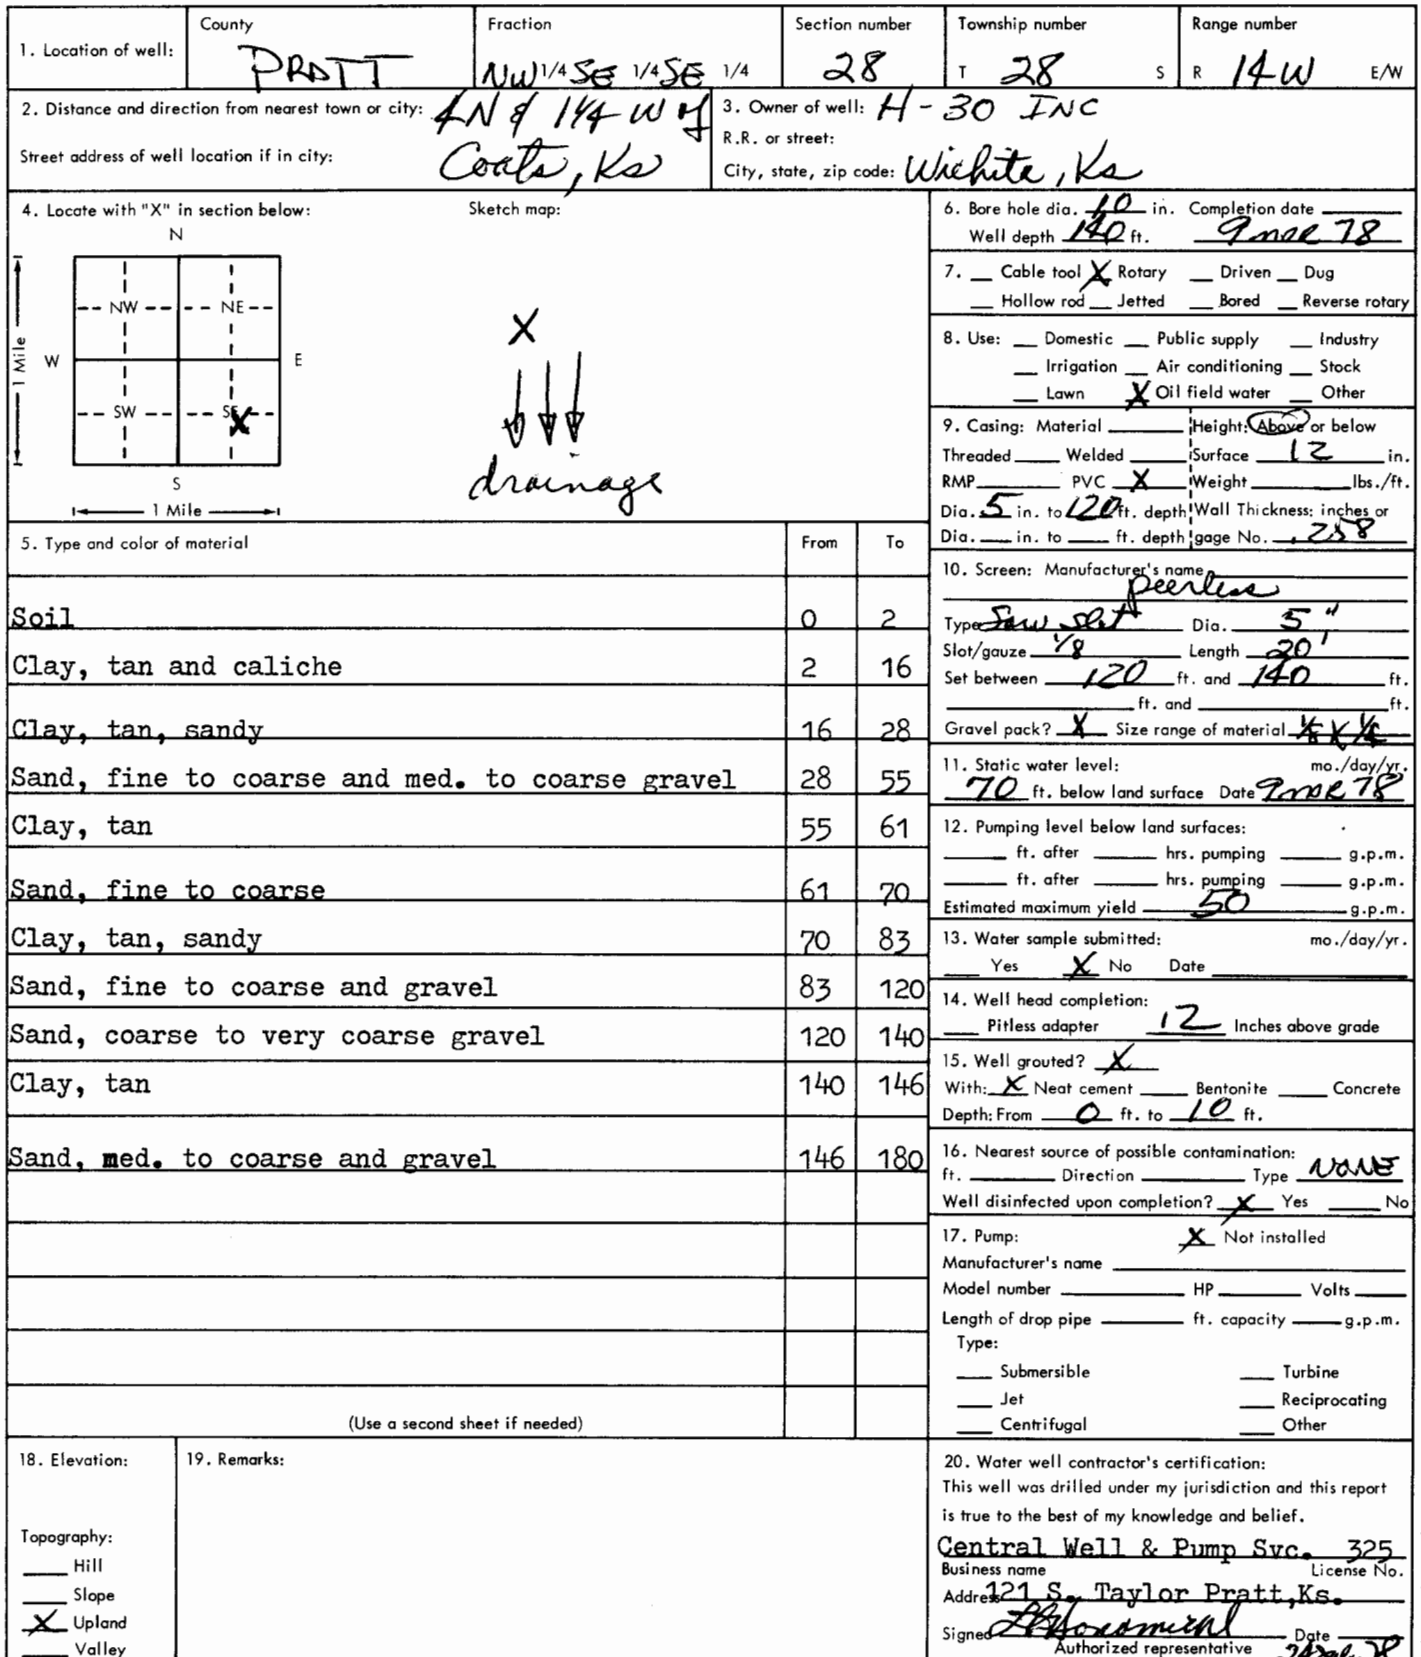 1. Location of well: County PRATT Fraction NW 1/4 SE 1/4 SE 1/4 Section number 28 Township number T 28 S Range number R 14W E/W
2. Distance and direction from nearest town or city: 4N & 1 1/4 W of
Street address of well location if in city: Coats, Ks
3. Owner of well: H-30 INC
R.R. or street:
City, state, zip code: Wichita, Ks
4. Locate with "X" in section below: Sketch map:
N
NW NE
W E
1 Mile
SW SE X
S
1 Mile
X
drainage
5. Type and color of material From To
Soil 0 2
Clay, tan and caliche 2 16
Clay, tan, sandy 16 28
Sand, fine to coarse and med. to coarse gravel 28 55
Clay, tan 55 61
Sand, fine to coarse 61 70
Clay, tan, sandy 70 83
Sand, fine to coarse and gravel 83 120
Sand, coarse to very coarse gravel 120 140
Clay, tan 140 146
Sand, med. to coarse and gravel 146 180
(Use a second sheet if needed)
6. Bore hole dia. 10 in. Completion date
Well depth 140 ft. 9 MAR 78
7. Cable tool X Rotary Driven Dug
Hollow rod Jetted Bored Reverse rotary
8. Use: Domestic Public supply Industry
Irrigation Air conditioning Stock
Lawn X Oil field water Other
9. Casing: Material Height: Above or below
Threaded Welded Surface 12 in.
RMP PVC X Weight lbs./ft.
Dia. 5 in. to 120 ft. depth Wall Thickness: inches or
Dia. in. to ft. depth gage No. .258
10. Screen: Manufacturer's name
Peerless
Type Saw slot Dia. 5"
Slot/gauze 1/8 Length 20'
Set between 120 ft. and 140 ft.
ft. and ft.
Gravel pack? X Size range of material 1/8 X 1/4
11. Static water level: mo./day/yr.
70 ft. below land surface Date 9 MAR 78
12. Pumping level below land surfaces:
ft. after hrs. pumping g.p.m.
ft. after hrs. pumping g.p.m.
Estimated maximum yield 50 g.p.m.
13. Water sample submitted: mo./day/yr.
Yes X No Date
14. Well head completion:
Pitless adapter 12 Inches above grade
15. Well grouted? X
With: X Neat cement Bentonite Concrete
Depth: From 0 ft. to 10 ft.
16. Nearest source of possible contamination:
ft. Direction Type NONE
Well disinfected upon completion? X Yes No
17. Pump: X Not installed
Manufacturer's name
Model number HP Volts
Length of drop pipe ft. capacity g.p.m.
Type:
Submersible Turbine
Jet Reciprocating
Centrifugal Other
18. Elevation:
Topography:
Hill
Slope
X Upland
Valley
19. Remarks:
20. Water well contractor's certification:
This well was drilled under my jurisdiction and this report
is true to the best of my knowledge and belief.
Central Well & Pump Svc. 325
Business name License No.
Address 121 S. Taylor Pratt, Ks.
Signed Date
Authorized representative